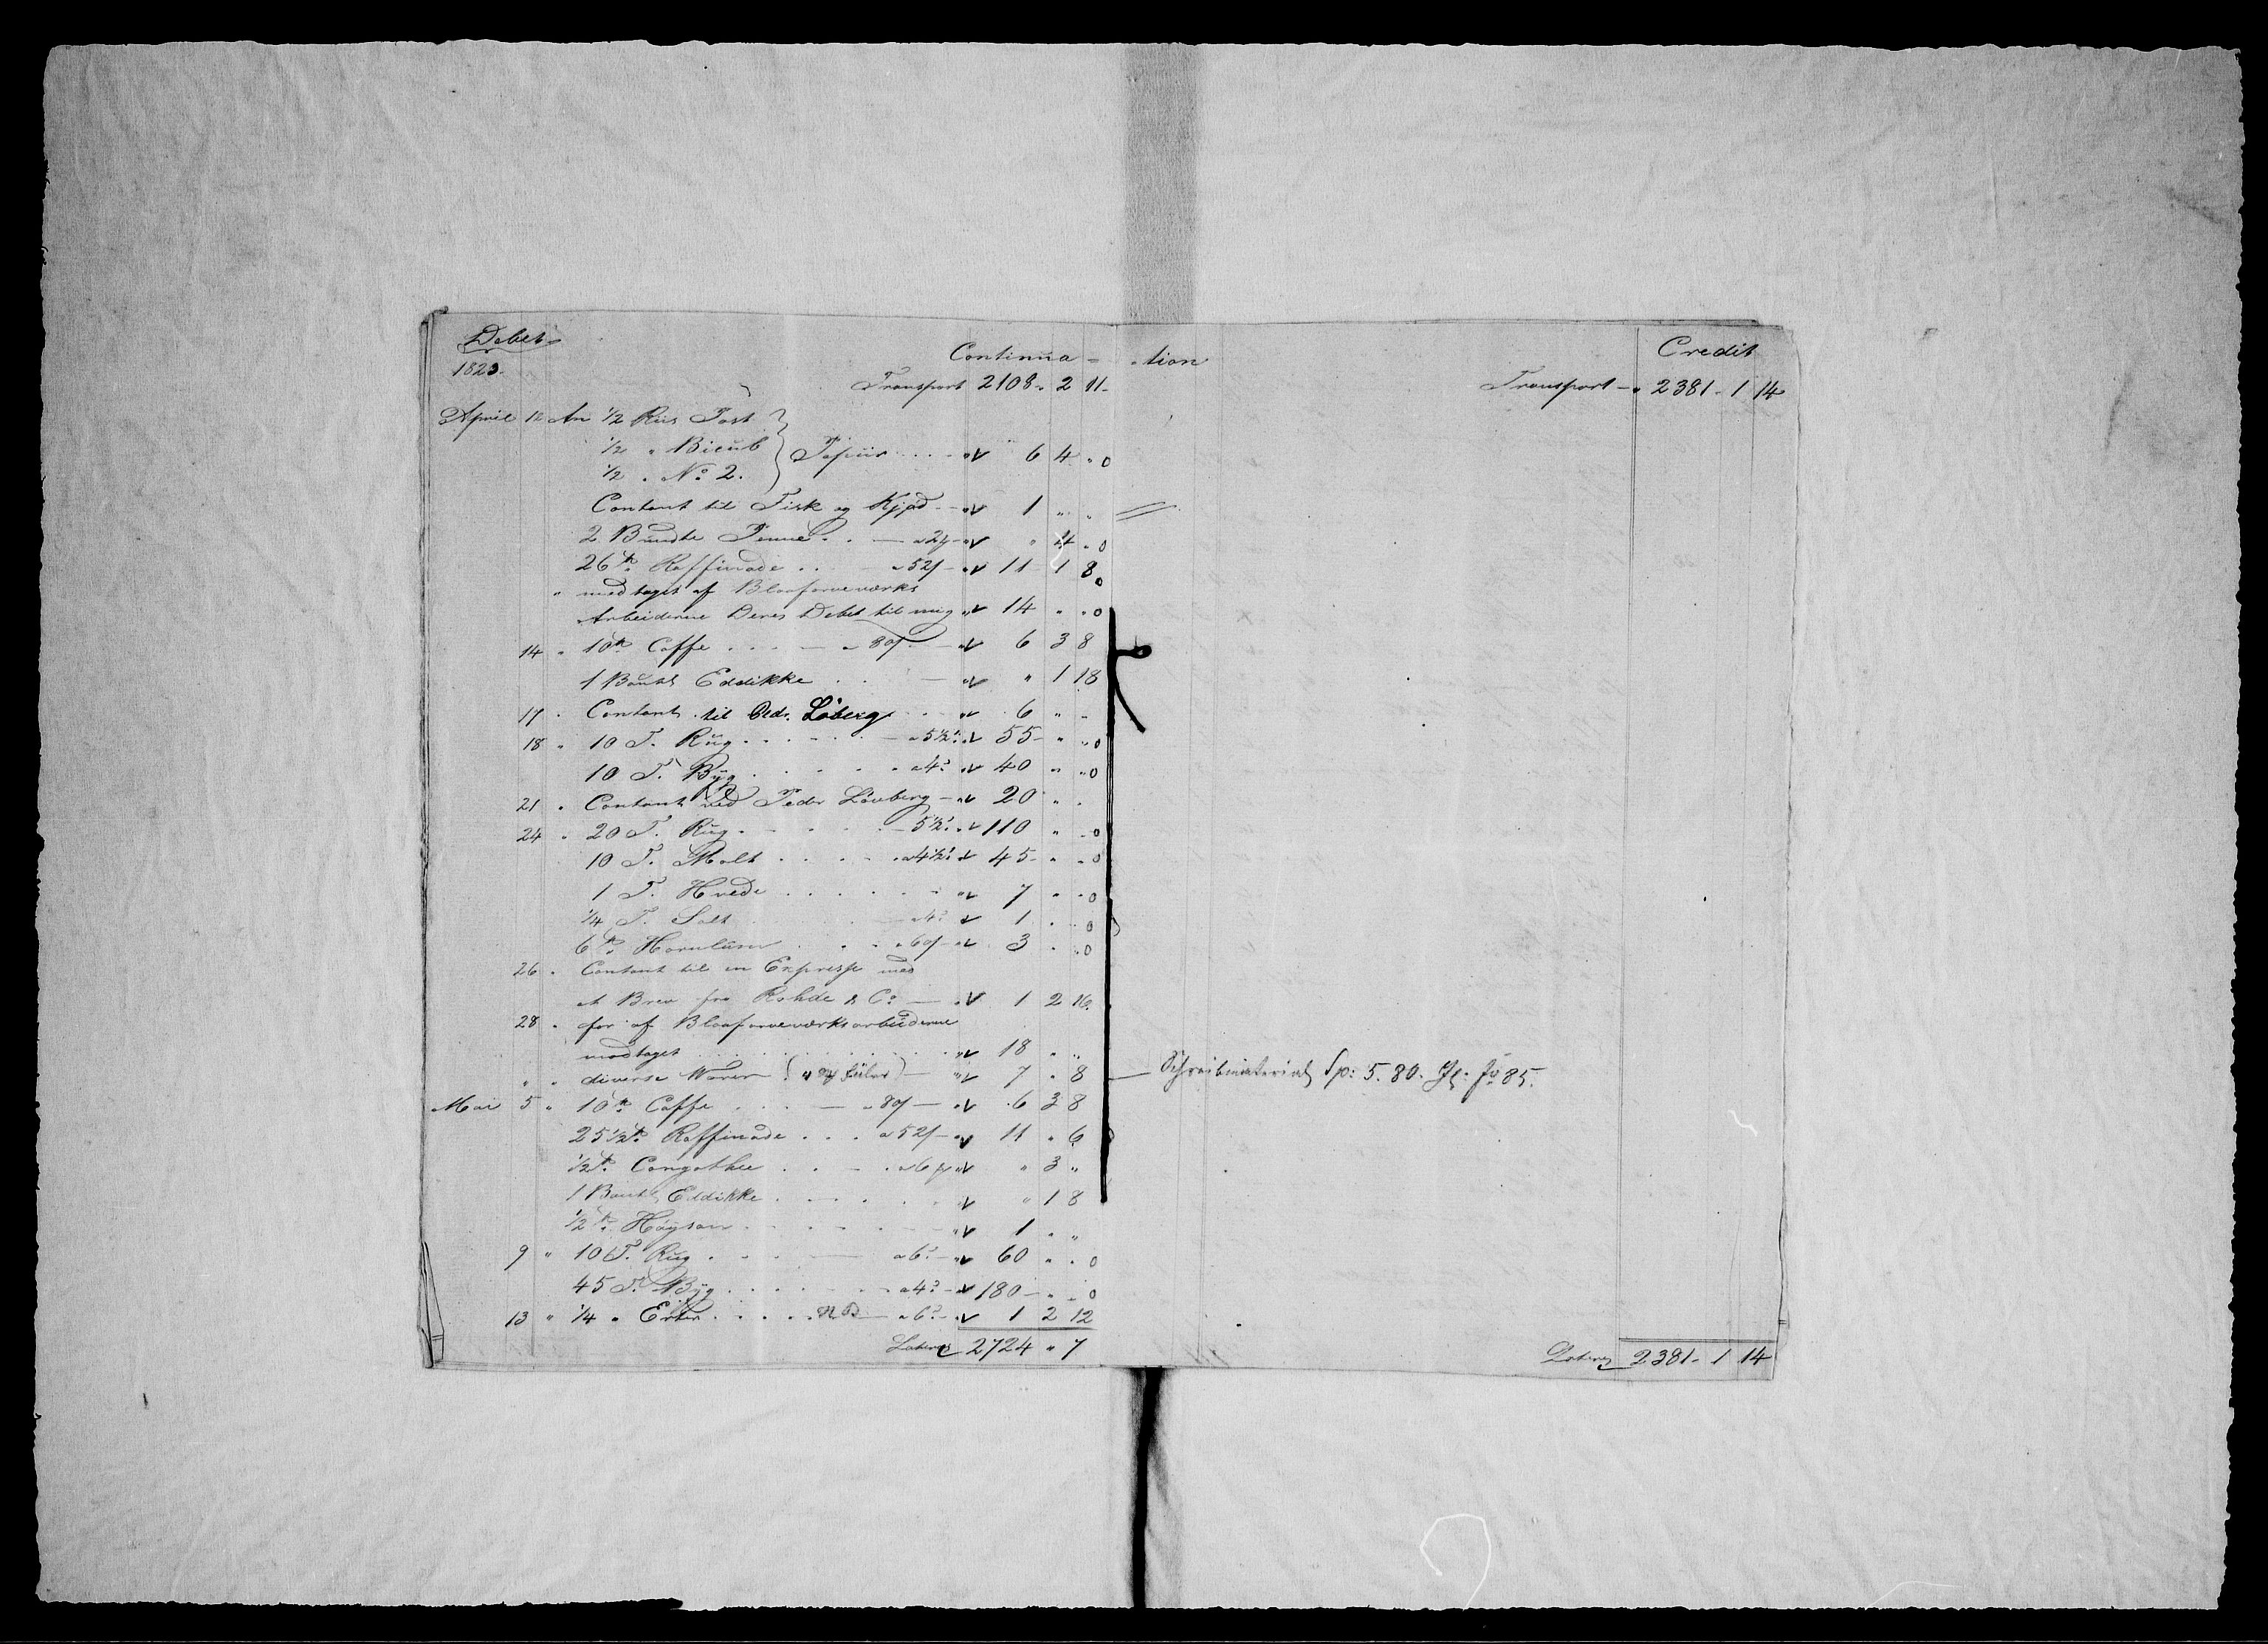 Debet
1823.
Continua - - tion
Credit
Transport 2108 " 2 11
Transport - " 2381 - 1 14
April 12 An 1/2 Riis Post
1/2 " Bicub } Papiir . . . " 6 4 " 0
1/2 " No 2.
Contant til Fisk og Kjød - " 1 " "
2 Bundte Penne . . — a 2 - " " 4 " 0
26 Raffinade . . a 52 - " 11 1 8 0
" modtaget af Blaafarveværks
Arbeiderne Deres Debet til mig " 14 " " 0
14 " 10 Caffe . . . — a 80 - " 6 3 8
1 Bout Eddikke . . — " " 1 18
17 " Contant til Pedr. Löberg . . " 6 " "
18 " 10 T. Rug . . . . . — a 5 1/2 " 55 - " " 0
10 T. Byg . . . . . a 4 " 40 " " 0
21 " Contant ved Peder Löuberg - " 20 " "
24 " 20 T. Rug . . . . - 5 1/2 " 110 " - 0
10 T. Malt . . . . a 4 1/2 " 45 - " - 0
1 T. Hvede . . . . . . " 7 " - 0
1/4 T. Salt — a 4 " 1 . . 0
6 Hornlüm . . . a 60 - " 3 . . 0
26 " Contant til en Expresse med
et Brev fra Rohde & Co — " 1 2 16
28 " for af Blaafarveværksarbeiderne
modtaget . . . . . . " 18 " "
" " diverse Warer — " 7 " 8 — Schreibmaterial Sp: 5. 80. 85.
Mai 5 " 10 Caffe . . . — a 80 — " 6 3 8
25 1/2 Raffinade . . . a 52 - " 11 " 6
1/2 Congothee . . - . a 6 " " 3 "
1 Bout Eddikke . . . . . " " 1 8
1/2 Høysan . . . . . - " 1 " "
9 " 10 T. Rug . . . — a 6 - " 60 " . 0
45 T. Byg . . . . . - a 4 - " 180 - " - 0
13 " 1/4 " Erter . . . . . NB — a 6 - " 1 2 12
Lateris 2724 " 7
Lateris 2381 - 1 14